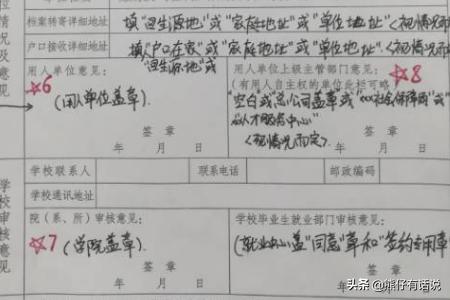 档案转寄详细地址 填"回生源地"或"家庭地址"或"单位地址"<视情况而
户口接收详细地址 填"户口在家"或"家庭地址"或"单位地址"<视情况而
"回生源地"或
用人单位意见: 用人单位上级主管部门意见:
☆6 (有用人自主权的单位此栏可略) ☆8
(用人单位盖章). "空白"或"总公司盖章或"xx社会保障局"或
"xx人才服务中心"
<视情况而定>.
签 章 签 章
年 月 日 年 月 日
学校联系人 联系电话 邮政编码
学校通讯地址
院(系、所)审核意见: 学校毕业生就业部门审核意见:
☆7 (学院盖章). (就业中心盖"同意"章和"签约专用章
签 章 签 章
年 月 日 年
位情况及意见
学校审核意见
头条 @熊仔有话说